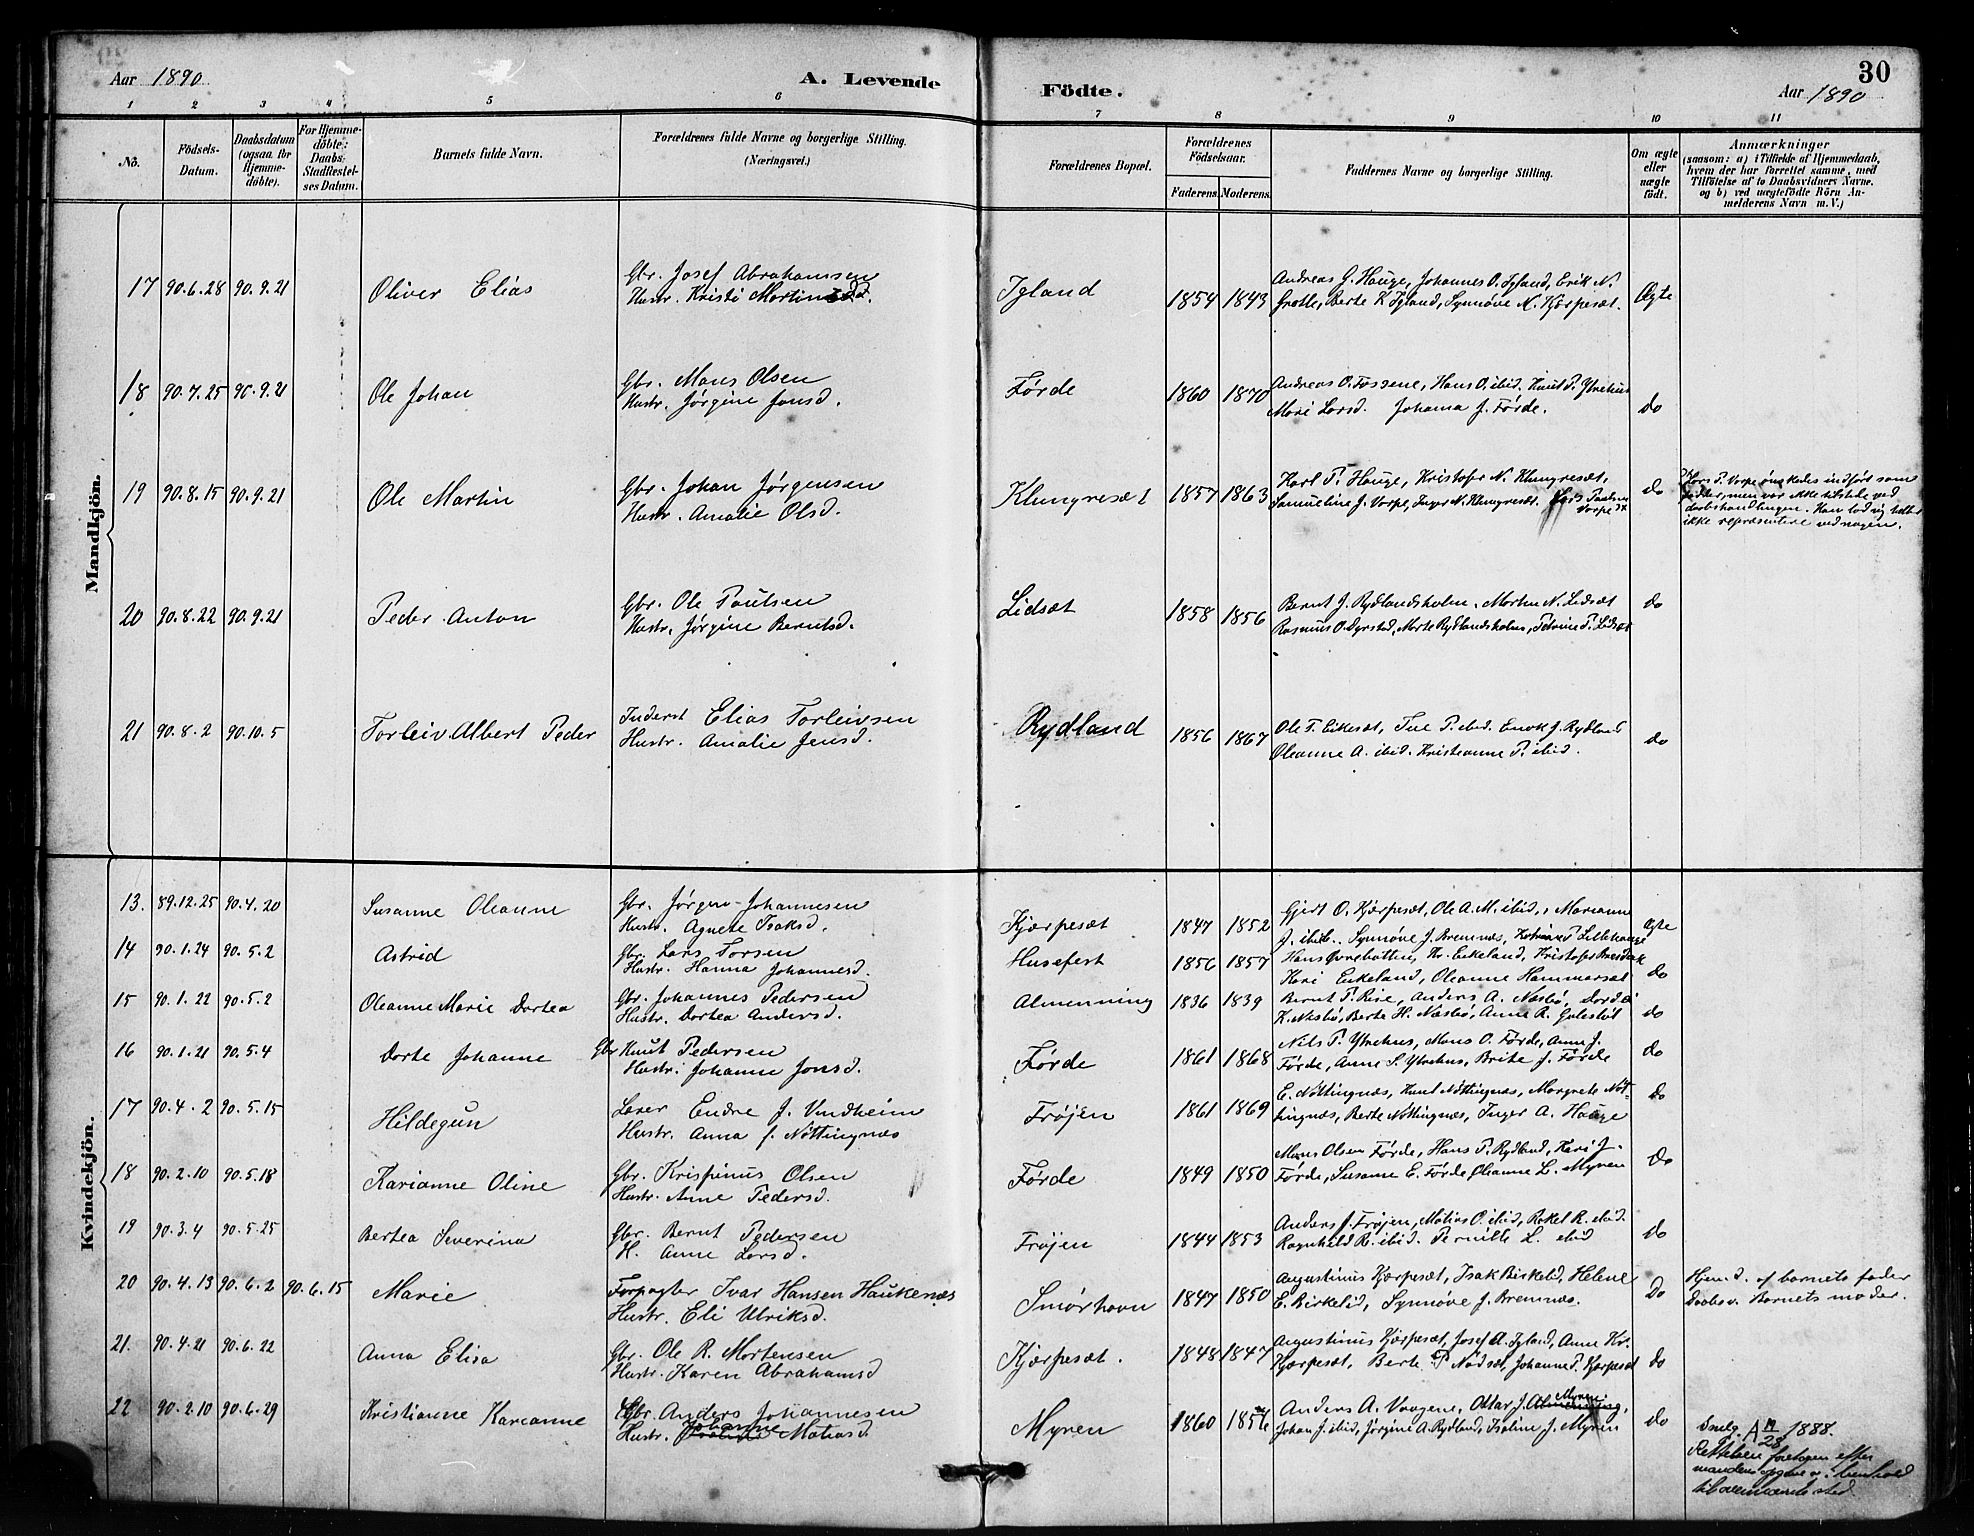 Aar 1890
A. Levende
Födte.
30
Aar 1890
1 2 3 4 5 6 7 8 9 10 11
No.
Födsels-
Datum.
Daabsdatum
(ogsaa for
Hjemme-
döbte).
For Hjemme-
döbte:
Daabs-
Stadfæstel-
ses Datum.
Barnets fulde Navn.
Forældrenes fulde Navne og borgerlige Stilling.
(Næringsvei.)
Forældrenes Bopæl.
Forældrenes
Födselsaar.
Faderens. Moderens.
Faddernes Navne og borgerlige Stilling.
Om ægte
eller
uægte
födt.
Anmærkninger
(saasom: a) i Tilfælde af Hjemmedaab,
hvem der har forrettet samme, med
Tilföielse af to Daabsvidners Navne.
og b) ved uægtefödte Börn An-
melderens Navn m. V.)
Mandkjön.
17 90.6.28 90.9.21 Oliver Elias
Gbr. Josef Abrahamsen
Hustr. Kristi Martinsd.
Igland 1854 1843
Andreas G. Hauge, Johannes O. Igland, Erik N.
Grotle, Berte K Igland, Synnøve N. Kjærpesæt.
Ægte
18 90.7.25 90.9.21 Ole Johan
Gbr. Mons Olsen
Hustr. Jørgine Jonsd.
Førde 1860 1870
Andreas O. Fossene, Hans O. ibid. Knut P. Ytrehus
Mari Larsd. Johanna J. Førde.
do
19 90.8.15 90.9.21 Ole Martin
Gbr. Johan Jørgensen
Hustr. Amalie Olsd.
Klungresæt 1857 1863
Karl P. Hauge, Kristofer N. Klungresæt,
Samueline J. Vorpe, Inger N. Klungresæt. Lars Paulsen
Vorpe
do
Lars P. Vorpe önskedes indført som
fadder, men var ikke tilstede ved
daabshandlingen. Han lod sig heller
ikke repræsentere ved nogen.
20 90.8.22 90.9.21 Peder Anton
Gbr. Ole Paulsen
Hustr. Jørgine Berntsd.
Lidsæt 1858 1856
Bernt J. Rydlandsholm, Morten N. Lidsæt
Rasmus O. Dyrstad, Marte Rydlandsholm, Petrine P. Lidsæt
do
21 90.8.2 90.10.5 Torleiv Albert Peder
Inderst Elias Torleivsen
Hustr. Amalie Jensd.
Rydland 1856 1867
Ole T. Eikesæt, Tue P. ibid. Enok J. Rydland
Oleanne A. ibid. Kristianne P. ibid.
do
Kvindekjön.
13. 89.12.25 90.4.20 Susanne Oleanne
Gbr. Jørgen Johannesen
Hustr. Agnete Isaksd.
Kjærpesæt 1847 1852
Gjert O. Kjærpesæt, Ole A. M. ibid., Marianne
J. ibid.. Synnøve J. Bremnæs, Lillehauge
Ægte
14 90.1.24 90.5.2 Astrid
Gbr. Lars Torsen
Hustr. Hanna Johannesd.
Husefest 1856 1857
Hans Øvrebotten, Kr. Eikeland, Kristofer
Kari Eikeland, Oleanne Hammersæt
do
15 90.1.22 90.5.2 Oleanne Marie Dortea
Gbr. Johannes Pedersen
Hustr. Dortea Andersd.
Almenning 1836 1839
Bernt P. Rise, Anders A. Nasbø, Dordei
K. Nasbø, Berte H. Nasbø, Anne R. Guleslöt
do
16 90.1.21 90.5.4 Dorte Johanne
Gbr Knut Pedersen
Hustr. Johanne Jonsd.
Førde 1861 1868
Nils P. Ytrehus, Mons O. Førde, Anne J.
Førde, Anne S. Ytrehus, Brite J. Førde
do
17 90.4.2 90.5.15 Hildegun
Lærer Endre J. Vindheim
Hustr. Anna J. Nöttingnæs
Frøjen 1861 1869
E. Nöttingnæs, Knut Nöttingnæs, Margrete Nöt-
tingnæs, Berte Nöttingnæs, Inger A. Hauge
do
18 90.2.10 90.5.18 Karianne Oline
Gbr. Krispinus Olsen
Hustr. Anne Pedersd.
Førde 1849 1850
Mons Olsen Førde, Hans P. Rydland, Kari J.
Førde, Susanne E. Førde, Oleanne L. Myren
do
19 90.3.4 90.5.25 Bertea Severina
Gbr. Bernt Pedersen
H. Anne Larsd.
Frøjen 1844 1853
Anders J. Frøjen, Matias O. ibid, Rakel R. ibid.
Ragnhild R. ibid. Pernille L. ibid
do
20 90.4.13 90.6.2 90.6.15 Marie
Forpagter Ivar Hansen Haukenæs
Hustr. Eli Ulriksd.
Smørhavn 1847 1850
Augustinus Kjærpesæt, Isak Birkelid, Helene
E. Birkelid, Synnøve J. Bremnæs.
do
Hjemd. af barnets fader
Daabsv. Barnets moder.
21. 90.4.21 90.6.22 Anna Elisa
Gbr. Ole R. Mortensen
Hustr. Karen Abrahamsd
Kjærpesæt. 1848 1847
Augustinus Kjærpesæt, Josef A. Igland, Anne Kr.
Kjærpesæt, Berte P Nödset, Johanne P. Kjærpesæt
do
22 90.2.10 90.6.29 Kristianne Karianne
Gbr. Anders Johannesen
Johanne
Hustr. Matiasd.
Myren 1860 1856
Myren
Anders A. Vaagene, Ottar J. Almenning,
Johan J. ibid, Jørgine A. Rydland, Isaline J. Myren
do
Smlg. A II/28 1888.
Rettelsen foretagen efter
mandens opgave og i henhold
til